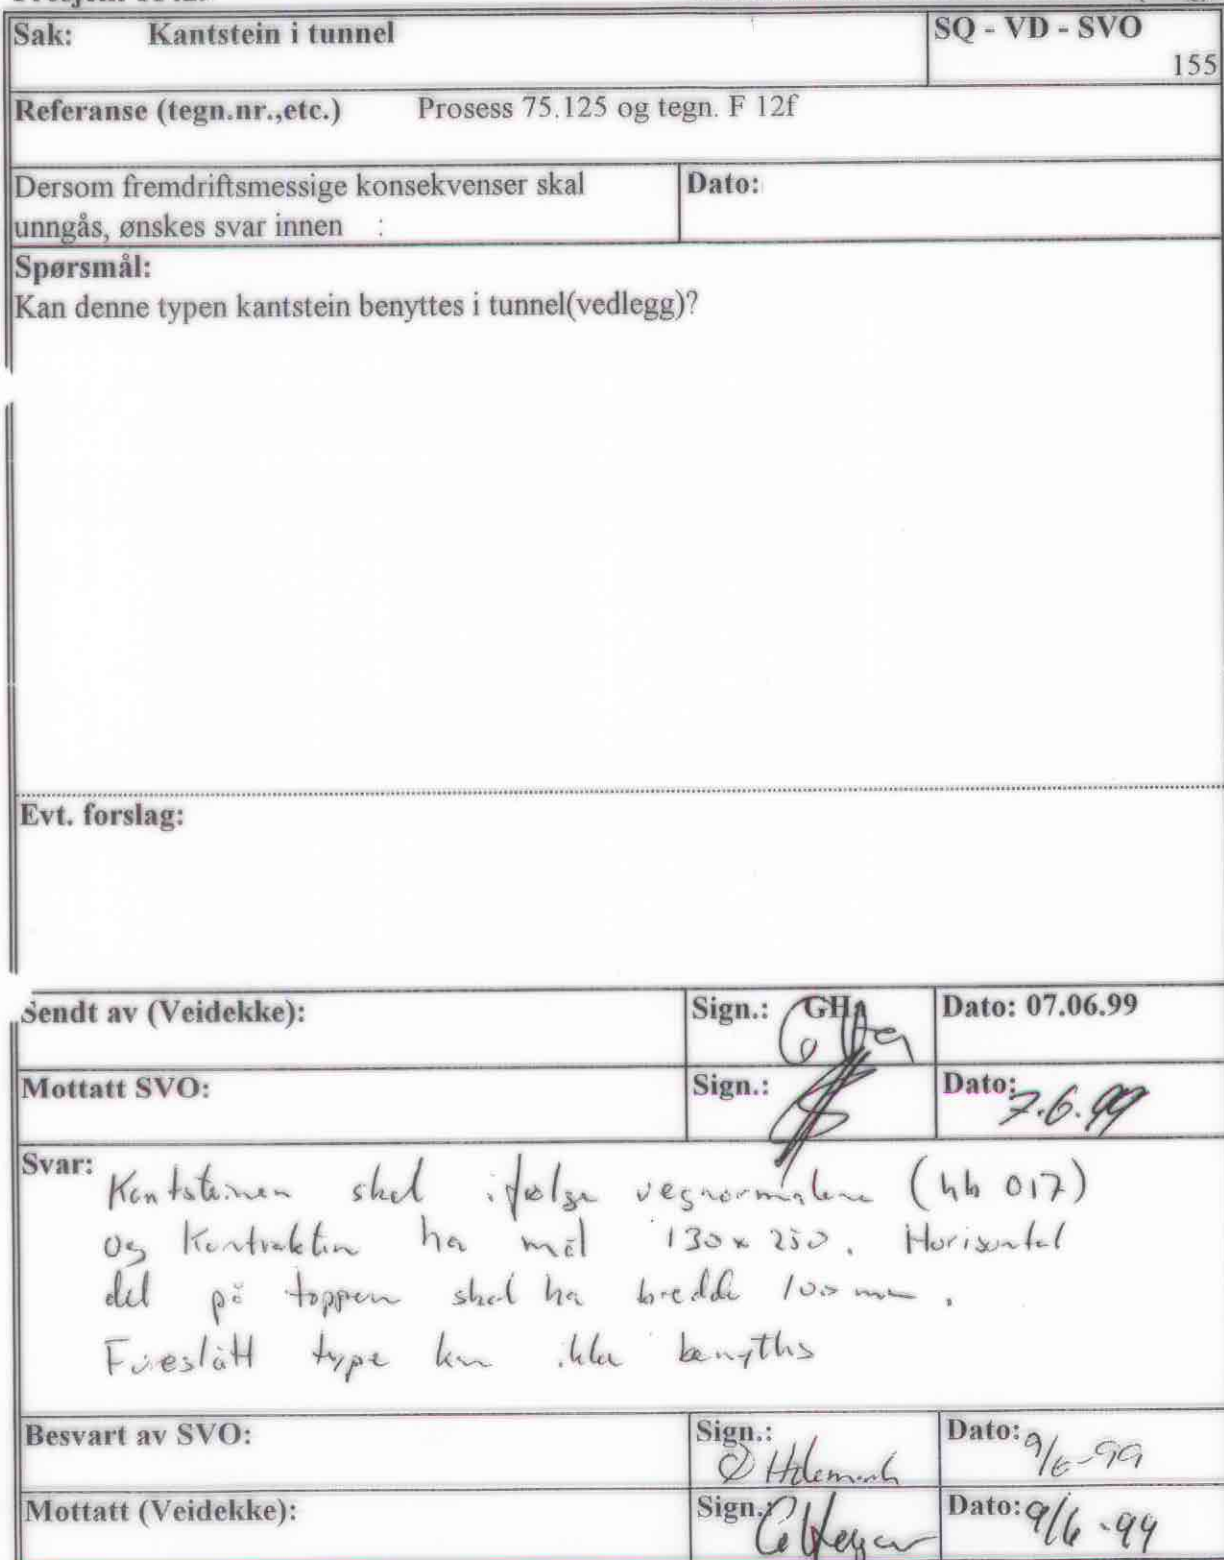 Sak: Kantstein i tunnel
SQ - VD - SVO
155
Referanse (tegn.nr.,etc.) Prosess 75.125 og tegn. F 12f
Dersom fremdriftsmessige konsekvenser skal
unngås, ønskes svar innen :
Dato:
Spørsmål:
Kan denne typen kantstein benyttes i tunnel(vedlegg)?
Evt. forslag:
Sendt av (Veidekke):
Sign.: GHa
Dato: 07.06.99
Mottatt SVO:
Sign.:
Dato: 7.6.99
Svar:
Kantsteinen skal ifølge vegnormalene (hb 017)
og kontrakten ha mål 130 x 250. Horisontal
del på toppen skal ha bredde 100 mm.
Foreslått type kan ikke benyttes
Besvart av SVO:
Sign.:
Dato: 9/6-99
Mottatt (Veidekke):
Sign.:
Dato: 9/6-99